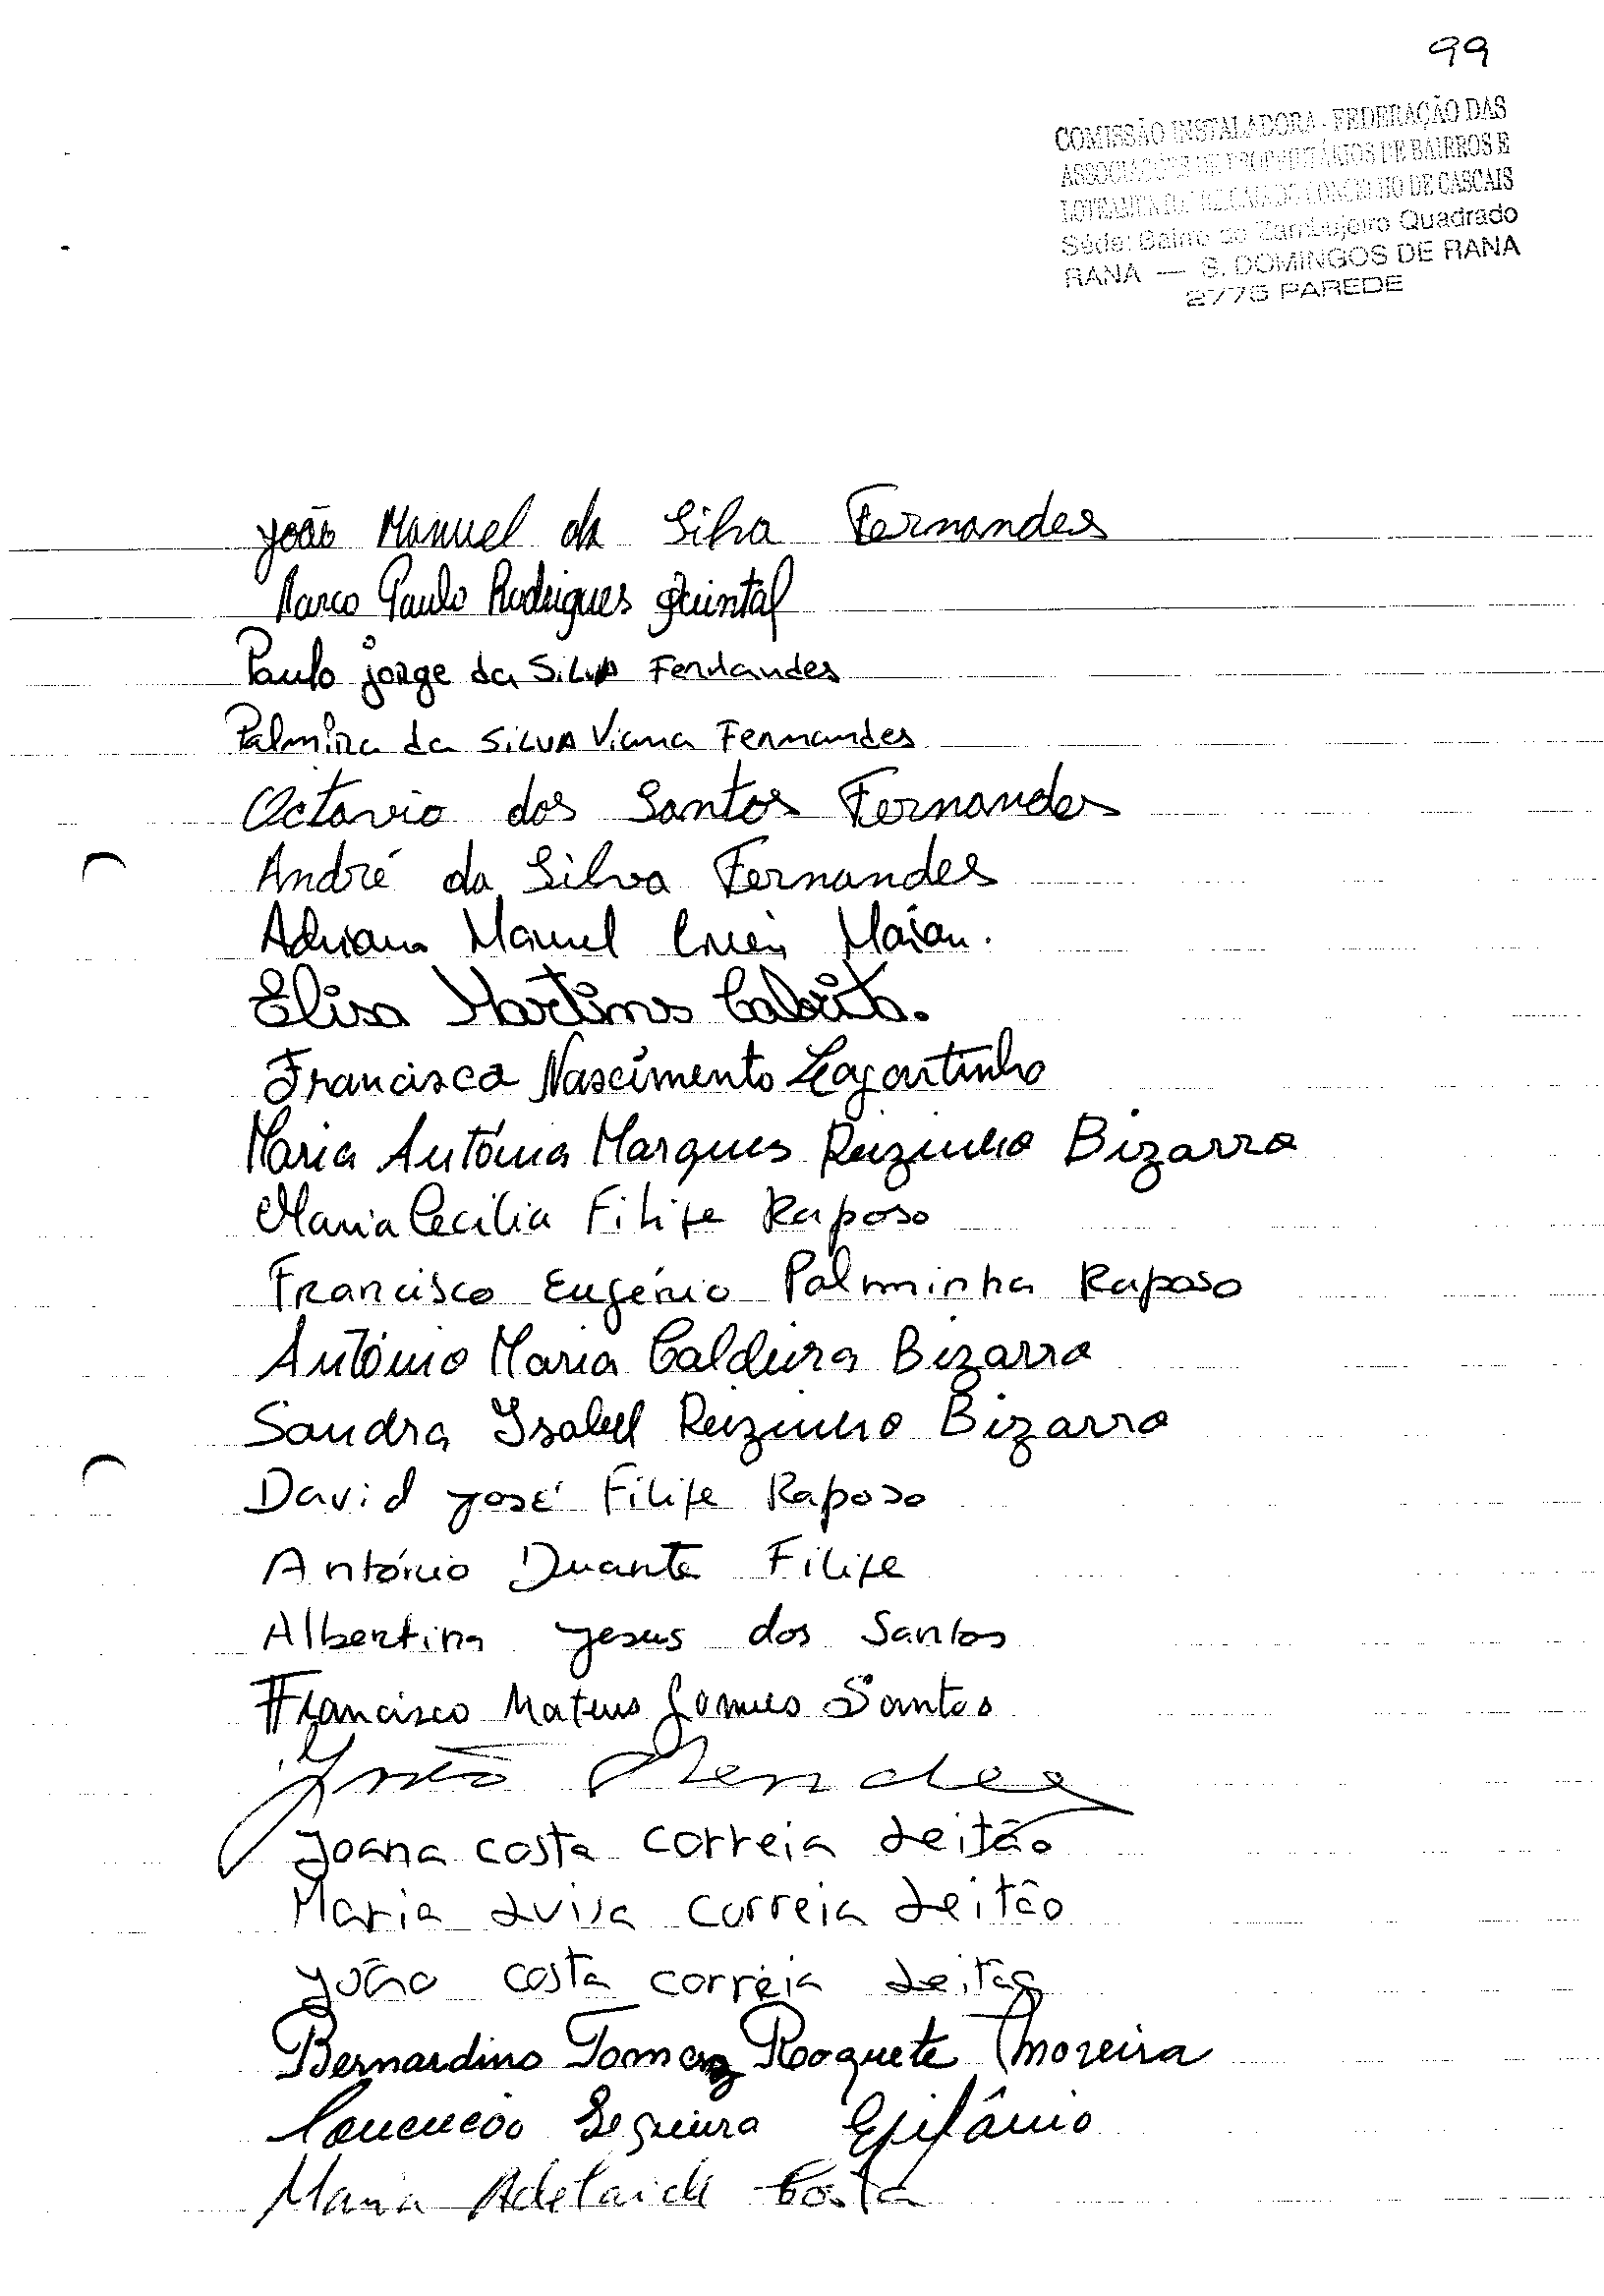 99
COMISSÃO INSTALADORA - FEDERAÇÃO DAS
ASSOCIAÇÕES DE PROPRIETÁRIOS DE BAIRROS E
CONCELHO DE CASCAIS
Séde: Bairro do Zambujeiro Quadrado
RANA — S. DOMINGOS DE RANA
2775 PAREDE
João Manuel da Silva Fernandes
Marco Paulo Rodrigues Quintal
Paulo Jorge da Silva Fernandes
Palmira da Silva Viana Fernandes
Octavio dos Santos Fernandes
André da Silva Fernandes
Manuel
Elisa Martins Cabrita.
Francisca Nascimento Lagartinho
Maria Antónia Marques Ruzinho Bizarro
Maria Cecília Filipe Raposo
Francisco Eugénio Palminha Raposo
António Maria Caldeira Bizarro
Sandra Isabel Ruzinho Bizarro
David José Filipe Raposo
António Duarte Filipe
Albertina Jesus dos Santos
Francisco Mateus Gomes Santos
João Mendes
Joana Costa Correia Leitão
Maria Luisa Correia Leitão
João Costa Correia Leitão
Bernardino Tomaz Roquete Moreira
Sequeira Epifânio
Maria Adelaide Costa